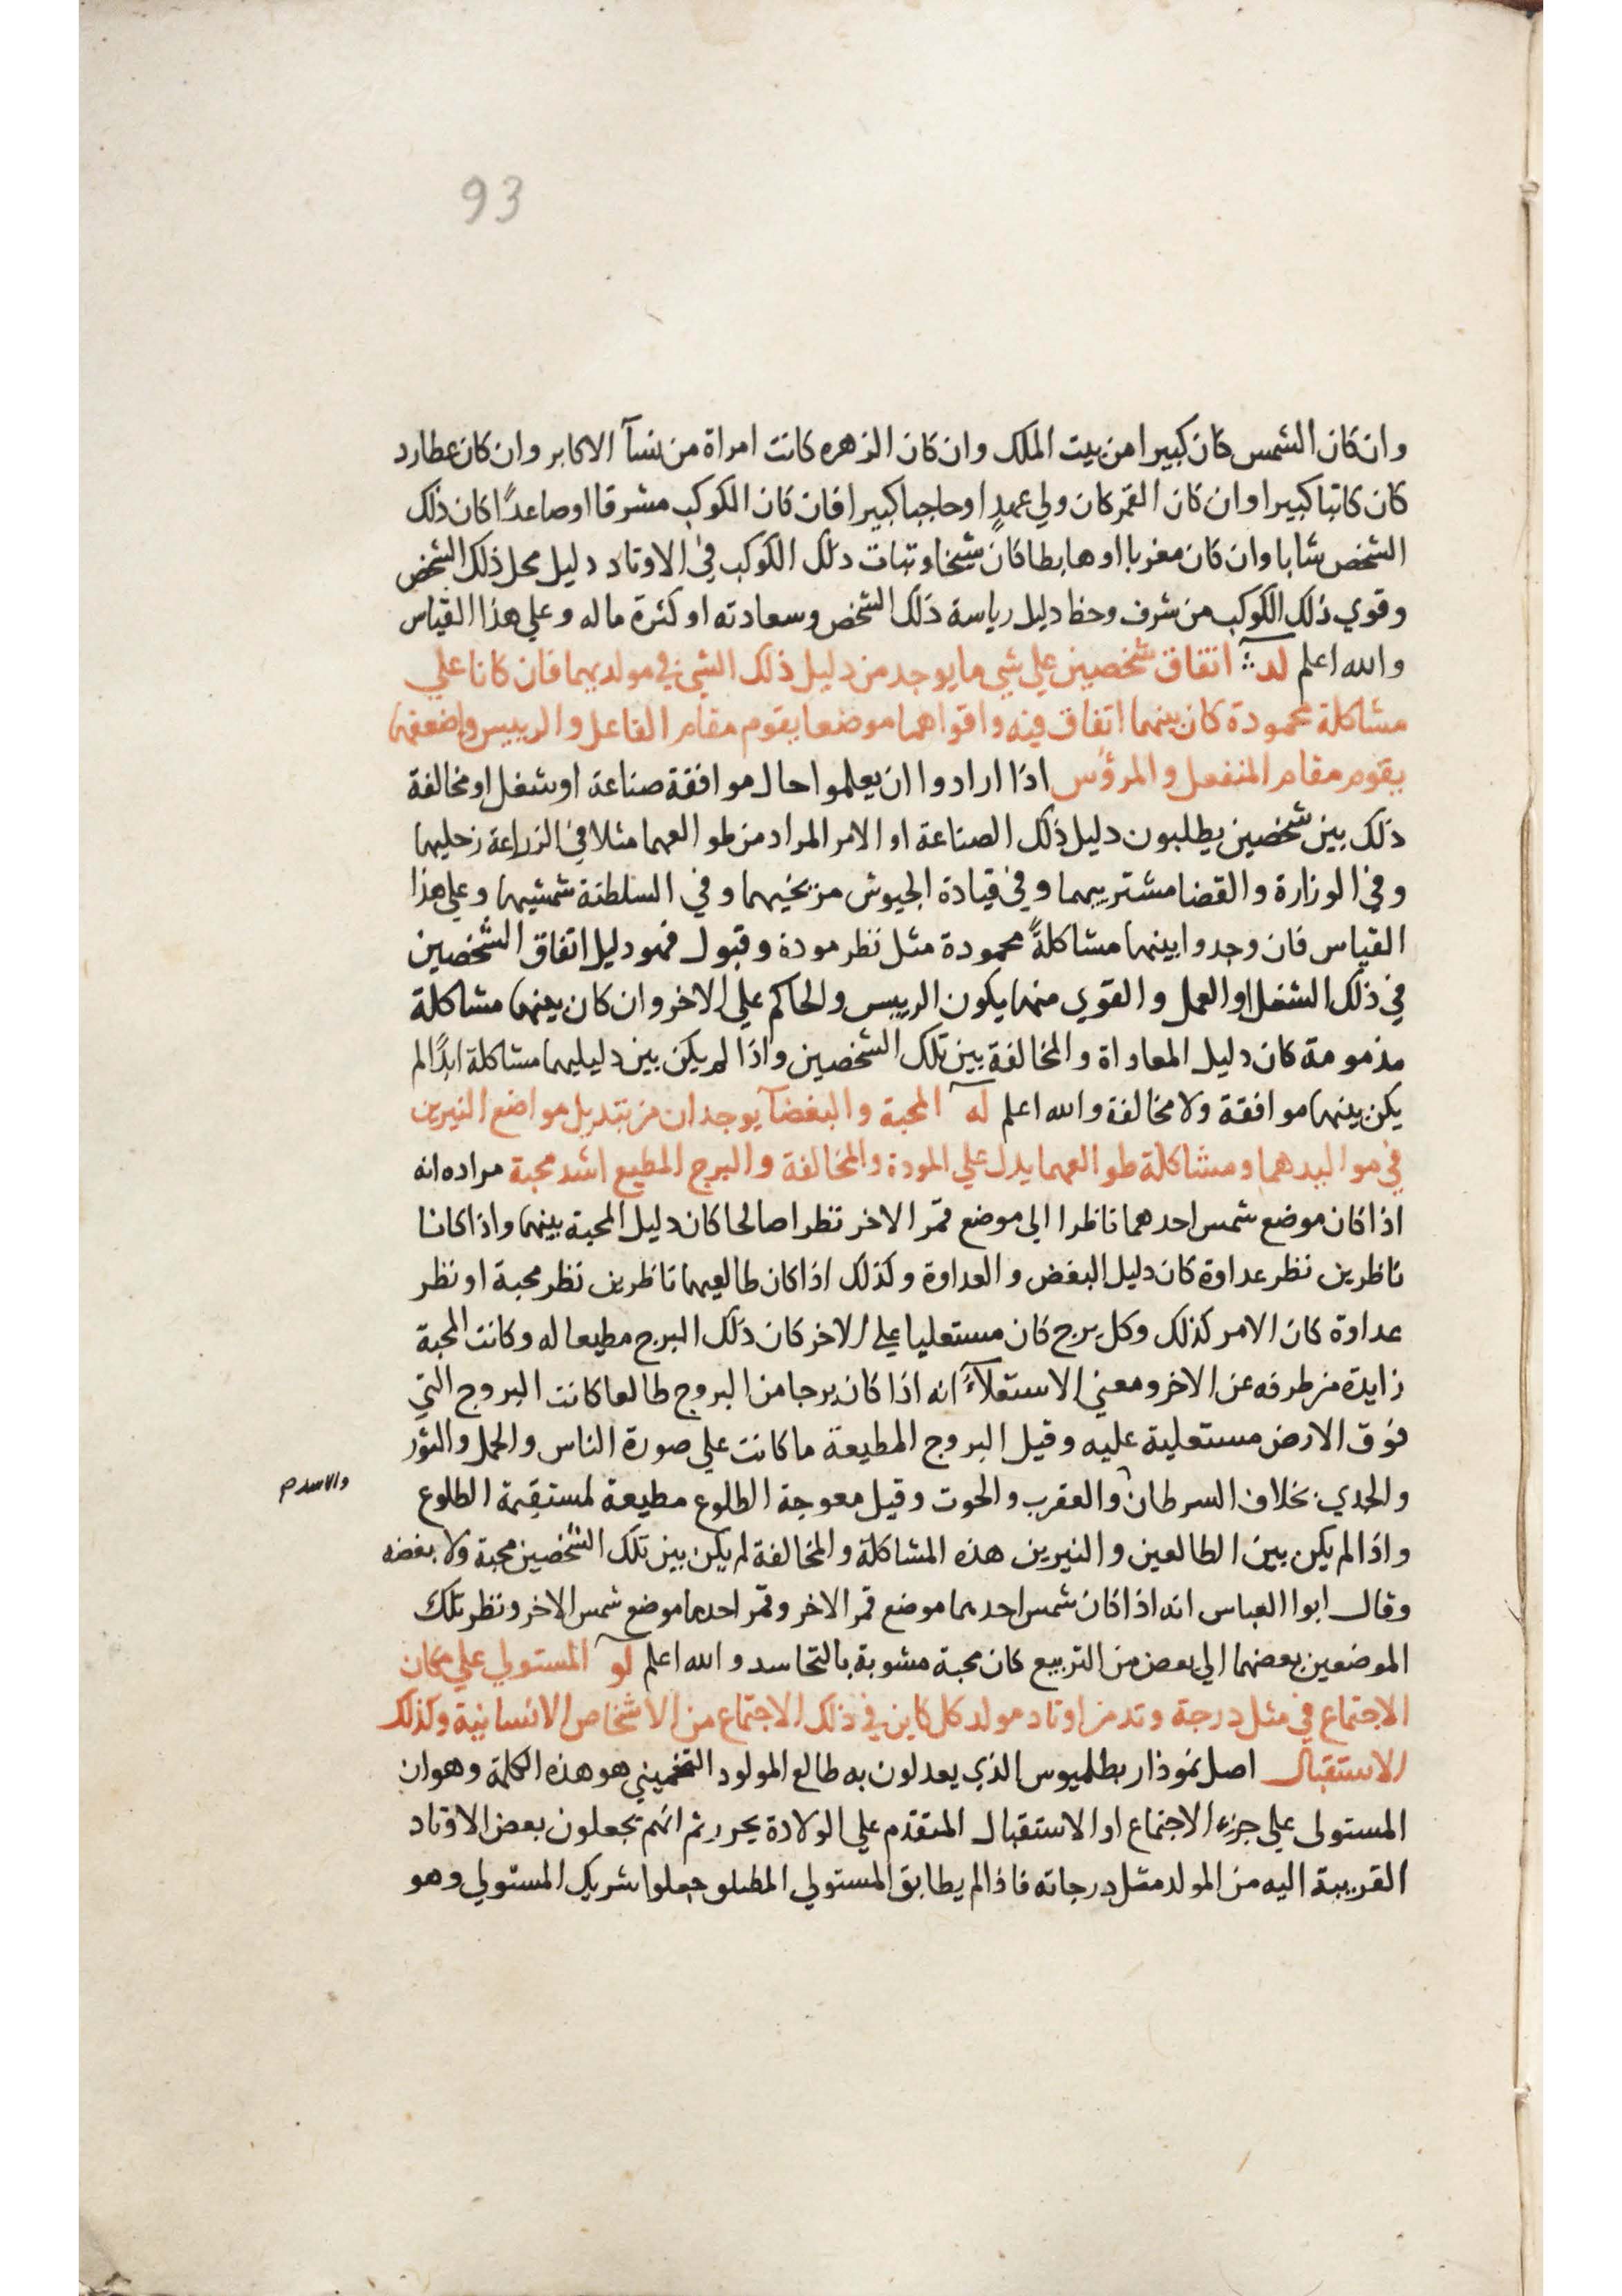 93
وان كان الشمس كان كبيرا من بيت الملك وان كان الزهره كانت امراة من نسآ الاكابر وان كان عطارد
كان كاتبا كبيرا وان كان القمر كان ولي عهدٍ او حاجبا كبيرا فان كان الكوكب مشرقا او صاعدًا كان ذلك
الشخص شابا وان كان مغربا او هابطا كان شيخا وثبات ذلك الكوكب في الاوتاد دليل محل ذلك الشخص
وقوي ذلك الكوكب من شرف وحظ دليل رياسة ذلك الشخص وسعادته او كثرة ماله وعلي هذا القياس
والله اعلم لد اتفاق شخصين علي شي ما يوجد من دليل ذلك الشي في مولديهما فان كانا علي
مشاكلة محمودة كان بينهما اتفاق فيه واقواهما موضعا يقوم مقام الفاعل والرييس واضعفهما
يقوم مقام المنفعل والمرؤس اذا ارادوا ان يعلموا حال موافقة صناعة او شغل او مخالفة
ذلك بين شخصين يطلبون دليل ذلك الصناعة او الامر المراد من طوالعهما مثلا في الزراعة زحليهما
وفي الوزارة والقضا مشترييهما وفي قيادة الجيوش مريخيهما وفي السلطنة شمشيهما وعلي هذا
القياس فان وجدوا بينهما مشاكلةً محمودة مثل نظر مودة وقبول فهو دليل اتفاق الشخصين
في ذلك الشغل او العمل والقوي منهما يكون الرييس والحاكم علي الاخر وان كان بينهما مشاكلة
مذمومة كان دليل المعاداة والمخالفة بين تلك الشخصين واذا لم يكن بين دليليهما مشاكلة ابدًا لم
يكن بينهما موافقة ولا مخالفة والله اعلم له المحبة والبغضآ يوجدان من تبديل مواضع النيرين
في مواليدهما ومشاكلة طوالعهما يدل علي المودة والمخالفة والبرج المطيع اشد محبة مراده انه
اذا كان موضع شمس احدهما ناظرا الي موضع قمر الاخر نظرا صالحا كان دليل المحبة بينهما واذا كانا
ناظرين نظر عداوة كان دليل البغض والعداوة وكذلك اذا كان طالعيهما ناظرين نظر محبة او نظر
عداوة كان الامر كذلك وكل برج كان مستعليا علي الاخر كان ذلك البرج مطيعا له وكانت المحبة
زايدة من طرفه عن الاخر ومعني الاستعلآء انه اذا كان برجا من البروج طالعا كانت البروج التي
فوق الارض مستعلية عليه وقيل البروج المطيعة ما كانت علي صورة الناس والحمل والثور
والجدي بخلاف السرطان والعقرب والحوت وقيل معوجة الطلوع مطيعة لمستقيمة الطلوع
والاسد م
واذا لم يكن بين الطالعين والنيرين هذه المشاكلة والمخالفة لم يكن بين تلك الشخصين محبة ولا بغضه
وقال ابوا العباس انه اذا كان شمس احدهما موضع قمر الاخر وقمر احدهما موضع شمس الاخر ونظر تلك
الموضعين بعضهما الي بعض من التربيع كان محبة مشوبة بالتحاسد والله اعلم لو المستولي علي مكان
الاجتماع في مثل درجة وتد من اوتاد مولد كل كاين في ذلك الاجتماع من الاشخاص الانسانية وكذلك
الاستقبال اصل نموذار بطلميوس الذي يعدلون به طالع المولود التخميني هو هذه الكلمة وهو ان
المستولى علي جزء الاجتماع او الاستقبال المتقدم علي الولادة يحرر ثم انهم يجعلون بعض الاوتاد
القريبة اليه من المولد مثل درجاته فاذا لم يطابق المستولي المطلو جعلوا شريك المستولي وهو